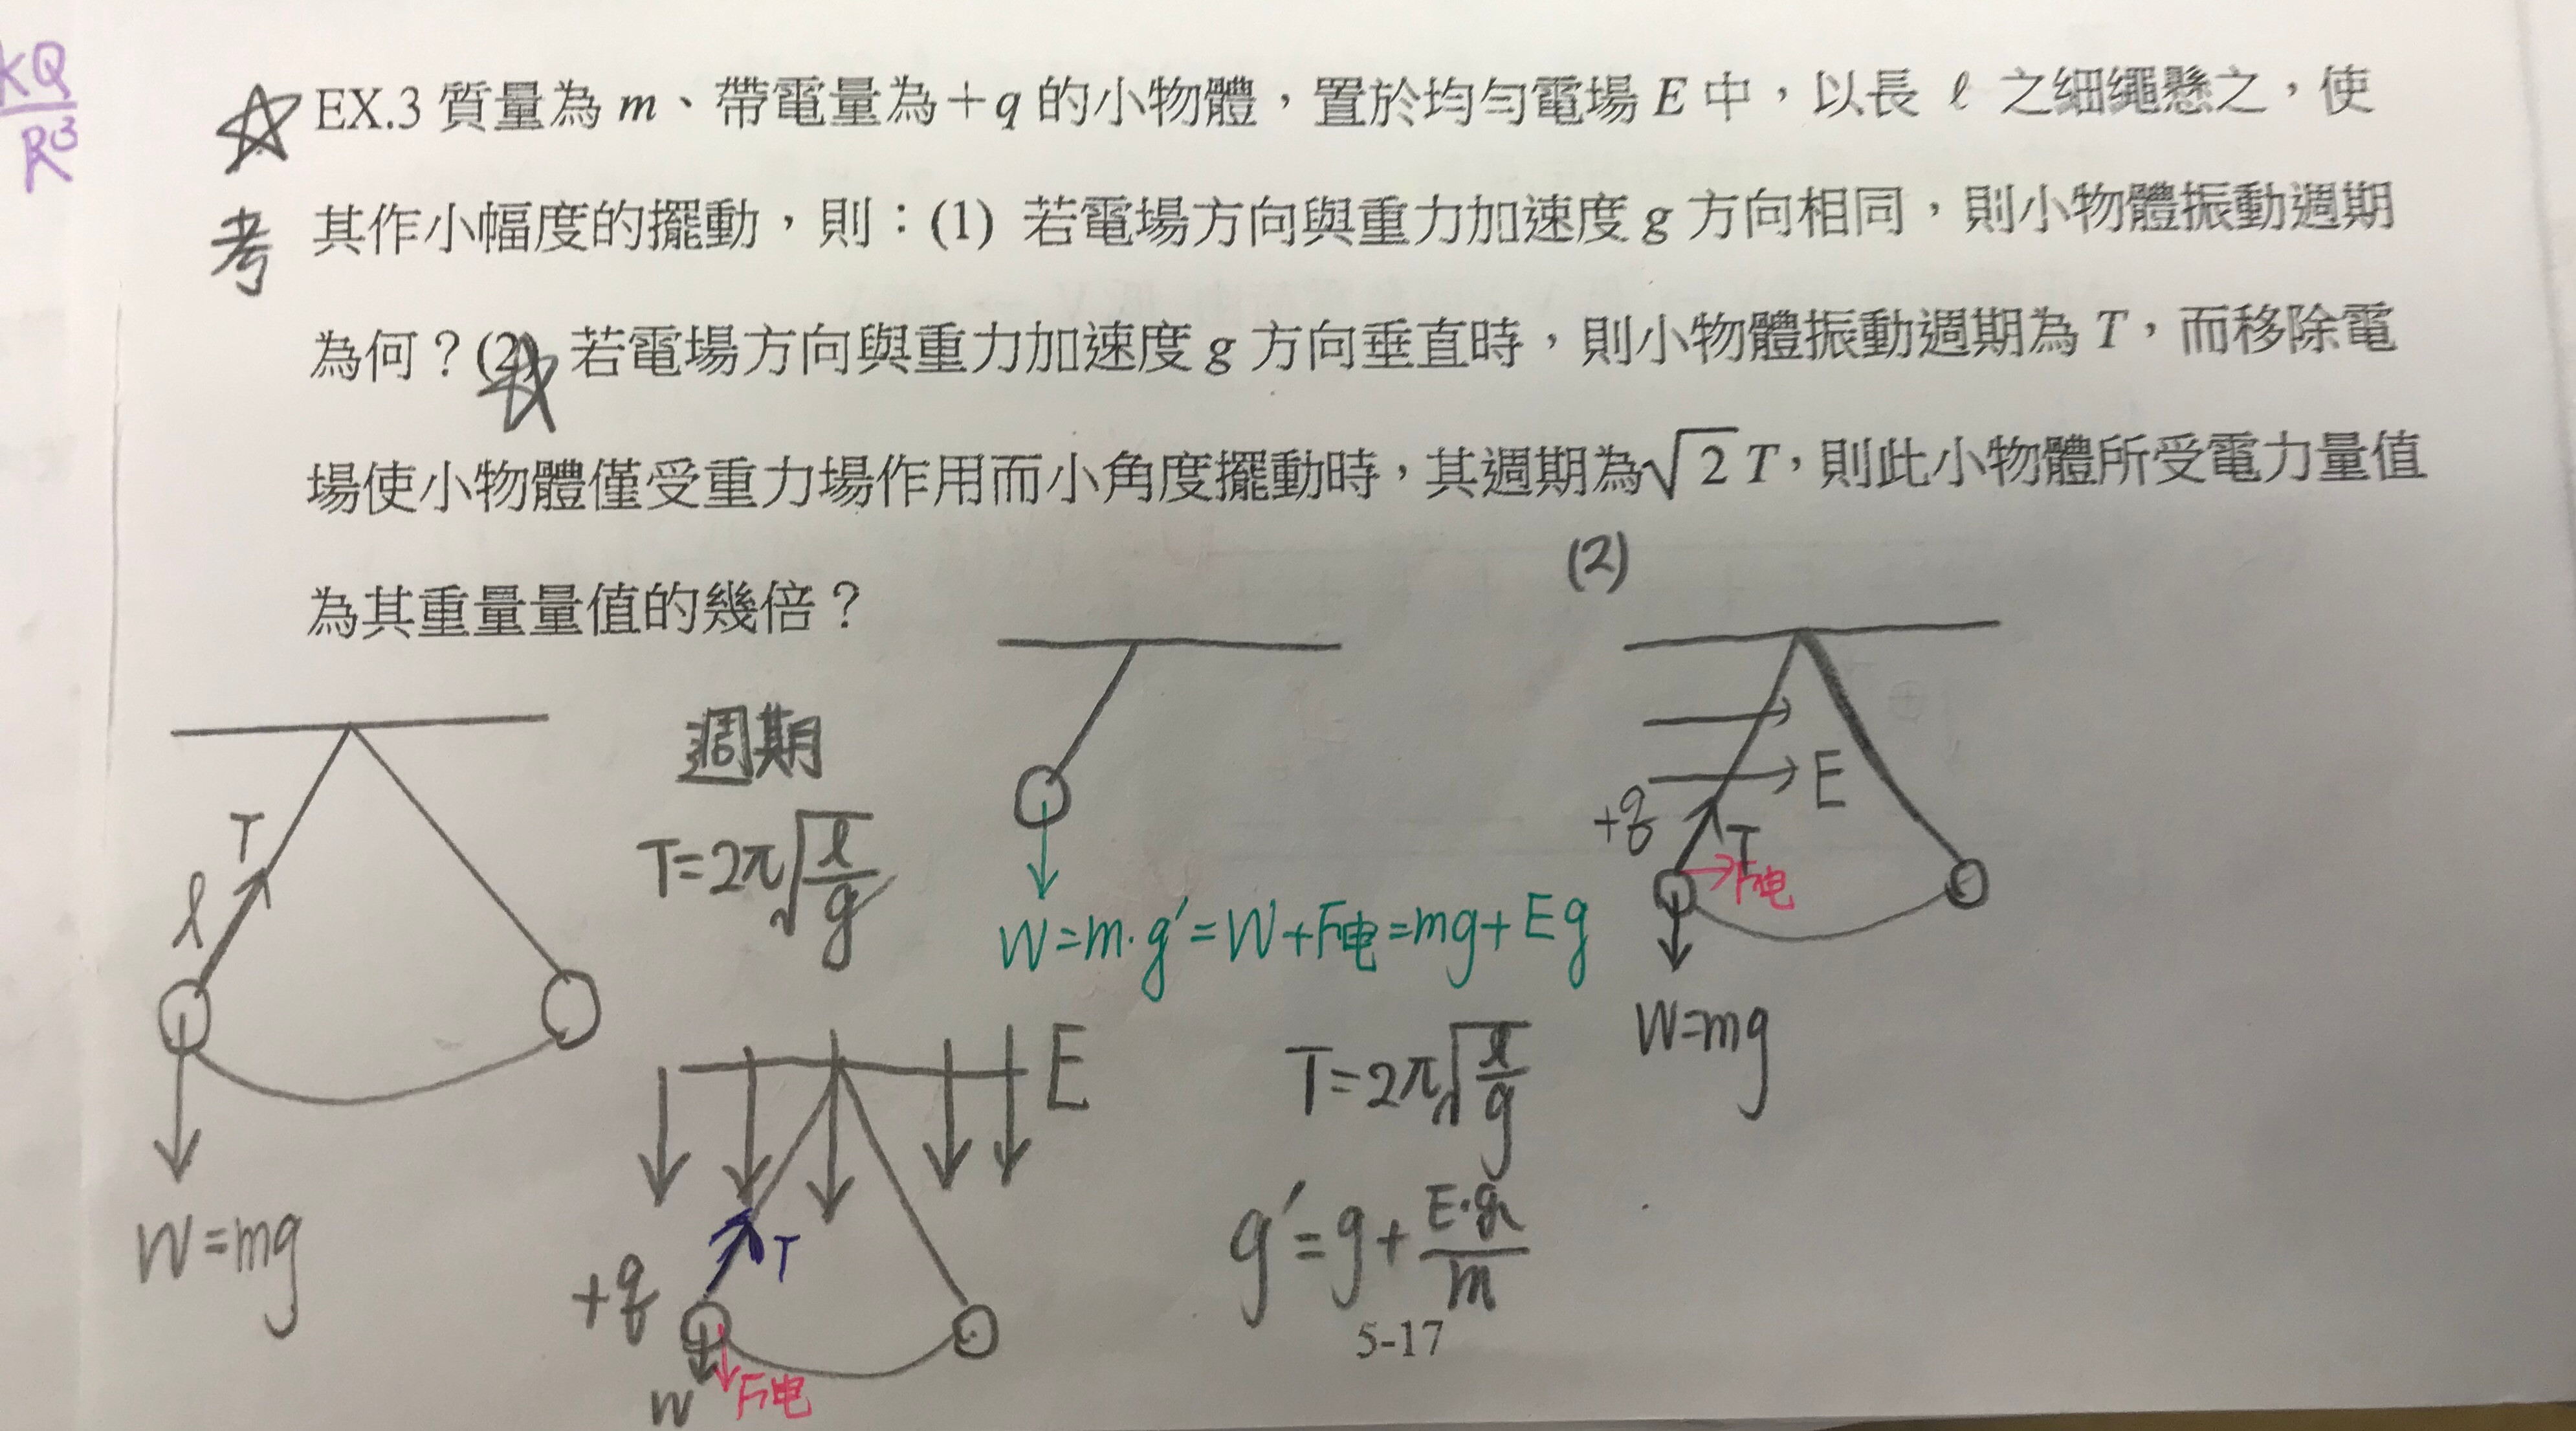 kQ
R³
EX.3 質量為 m、帶電量為+q 的小物體，置於均勻電場 E 中，以長 ℓ 之細繩懸之，使
考 其作小幅度的擺動，則：(1) 若電場方向與重力加速度 g 方向相同，則小物體振動週期
為何？(2) 若電場方向與重力加速度 g 方向垂直時，則小物體振動週期為 T，而移除電
場使小物體僅受重力場作用而小角度擺動時，其週期為√2 T，則此小物體所受電力量值
為其重量量值的幾倍？
(2)
週期
T=2π√(ℓ/g)
T
ℓ
W=mg
W=m·g′=W+F电=mg+Eq
E
+q
T
F电
W=mg
E
T=2π√(ℓ/g)
g′=g+E·q/m
T
+q
W
F电
5-17